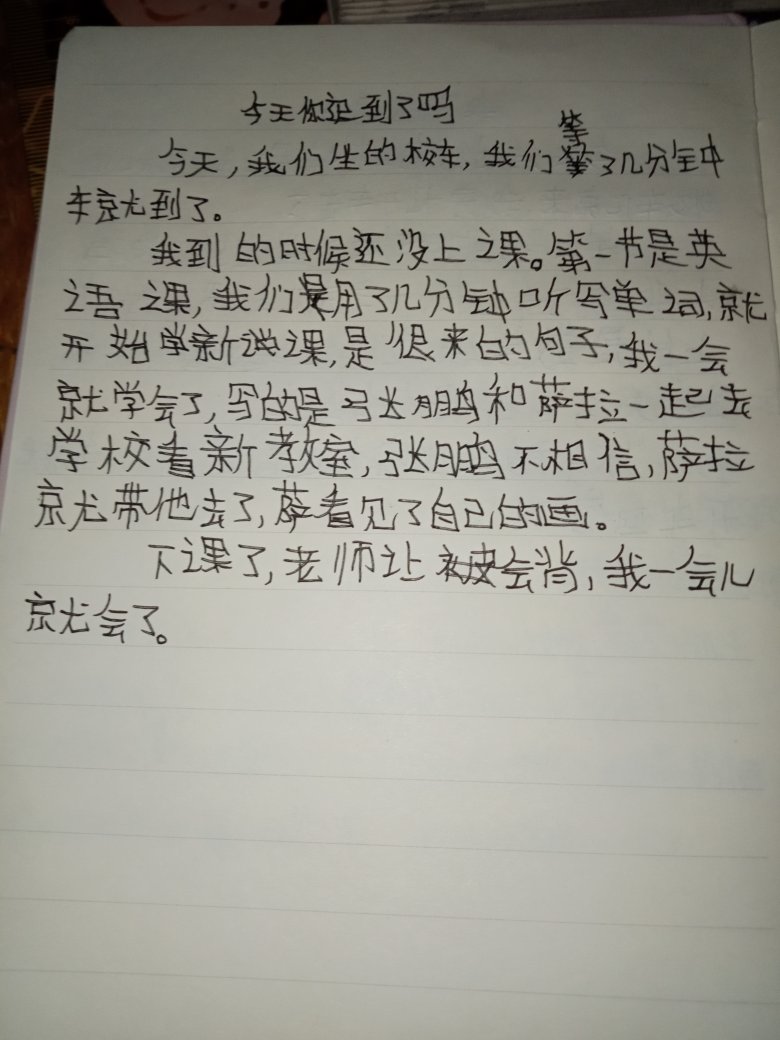 今天你迟到了吗
今天,我们坐的校车,我们等了几分钟
车就到了。
我到的时候还没上课。第一节是英
语课,我们是用了几分钟听写单词,就
开始学新说课,是很来的句子,我一会
就学会了,写的是张鹏和萨拉一起去
学校看新教室,张鹏不相信,萨拉
就带他去了,萨看见了自己的画。
下课了,老师让会背,我一会儿
就会了。